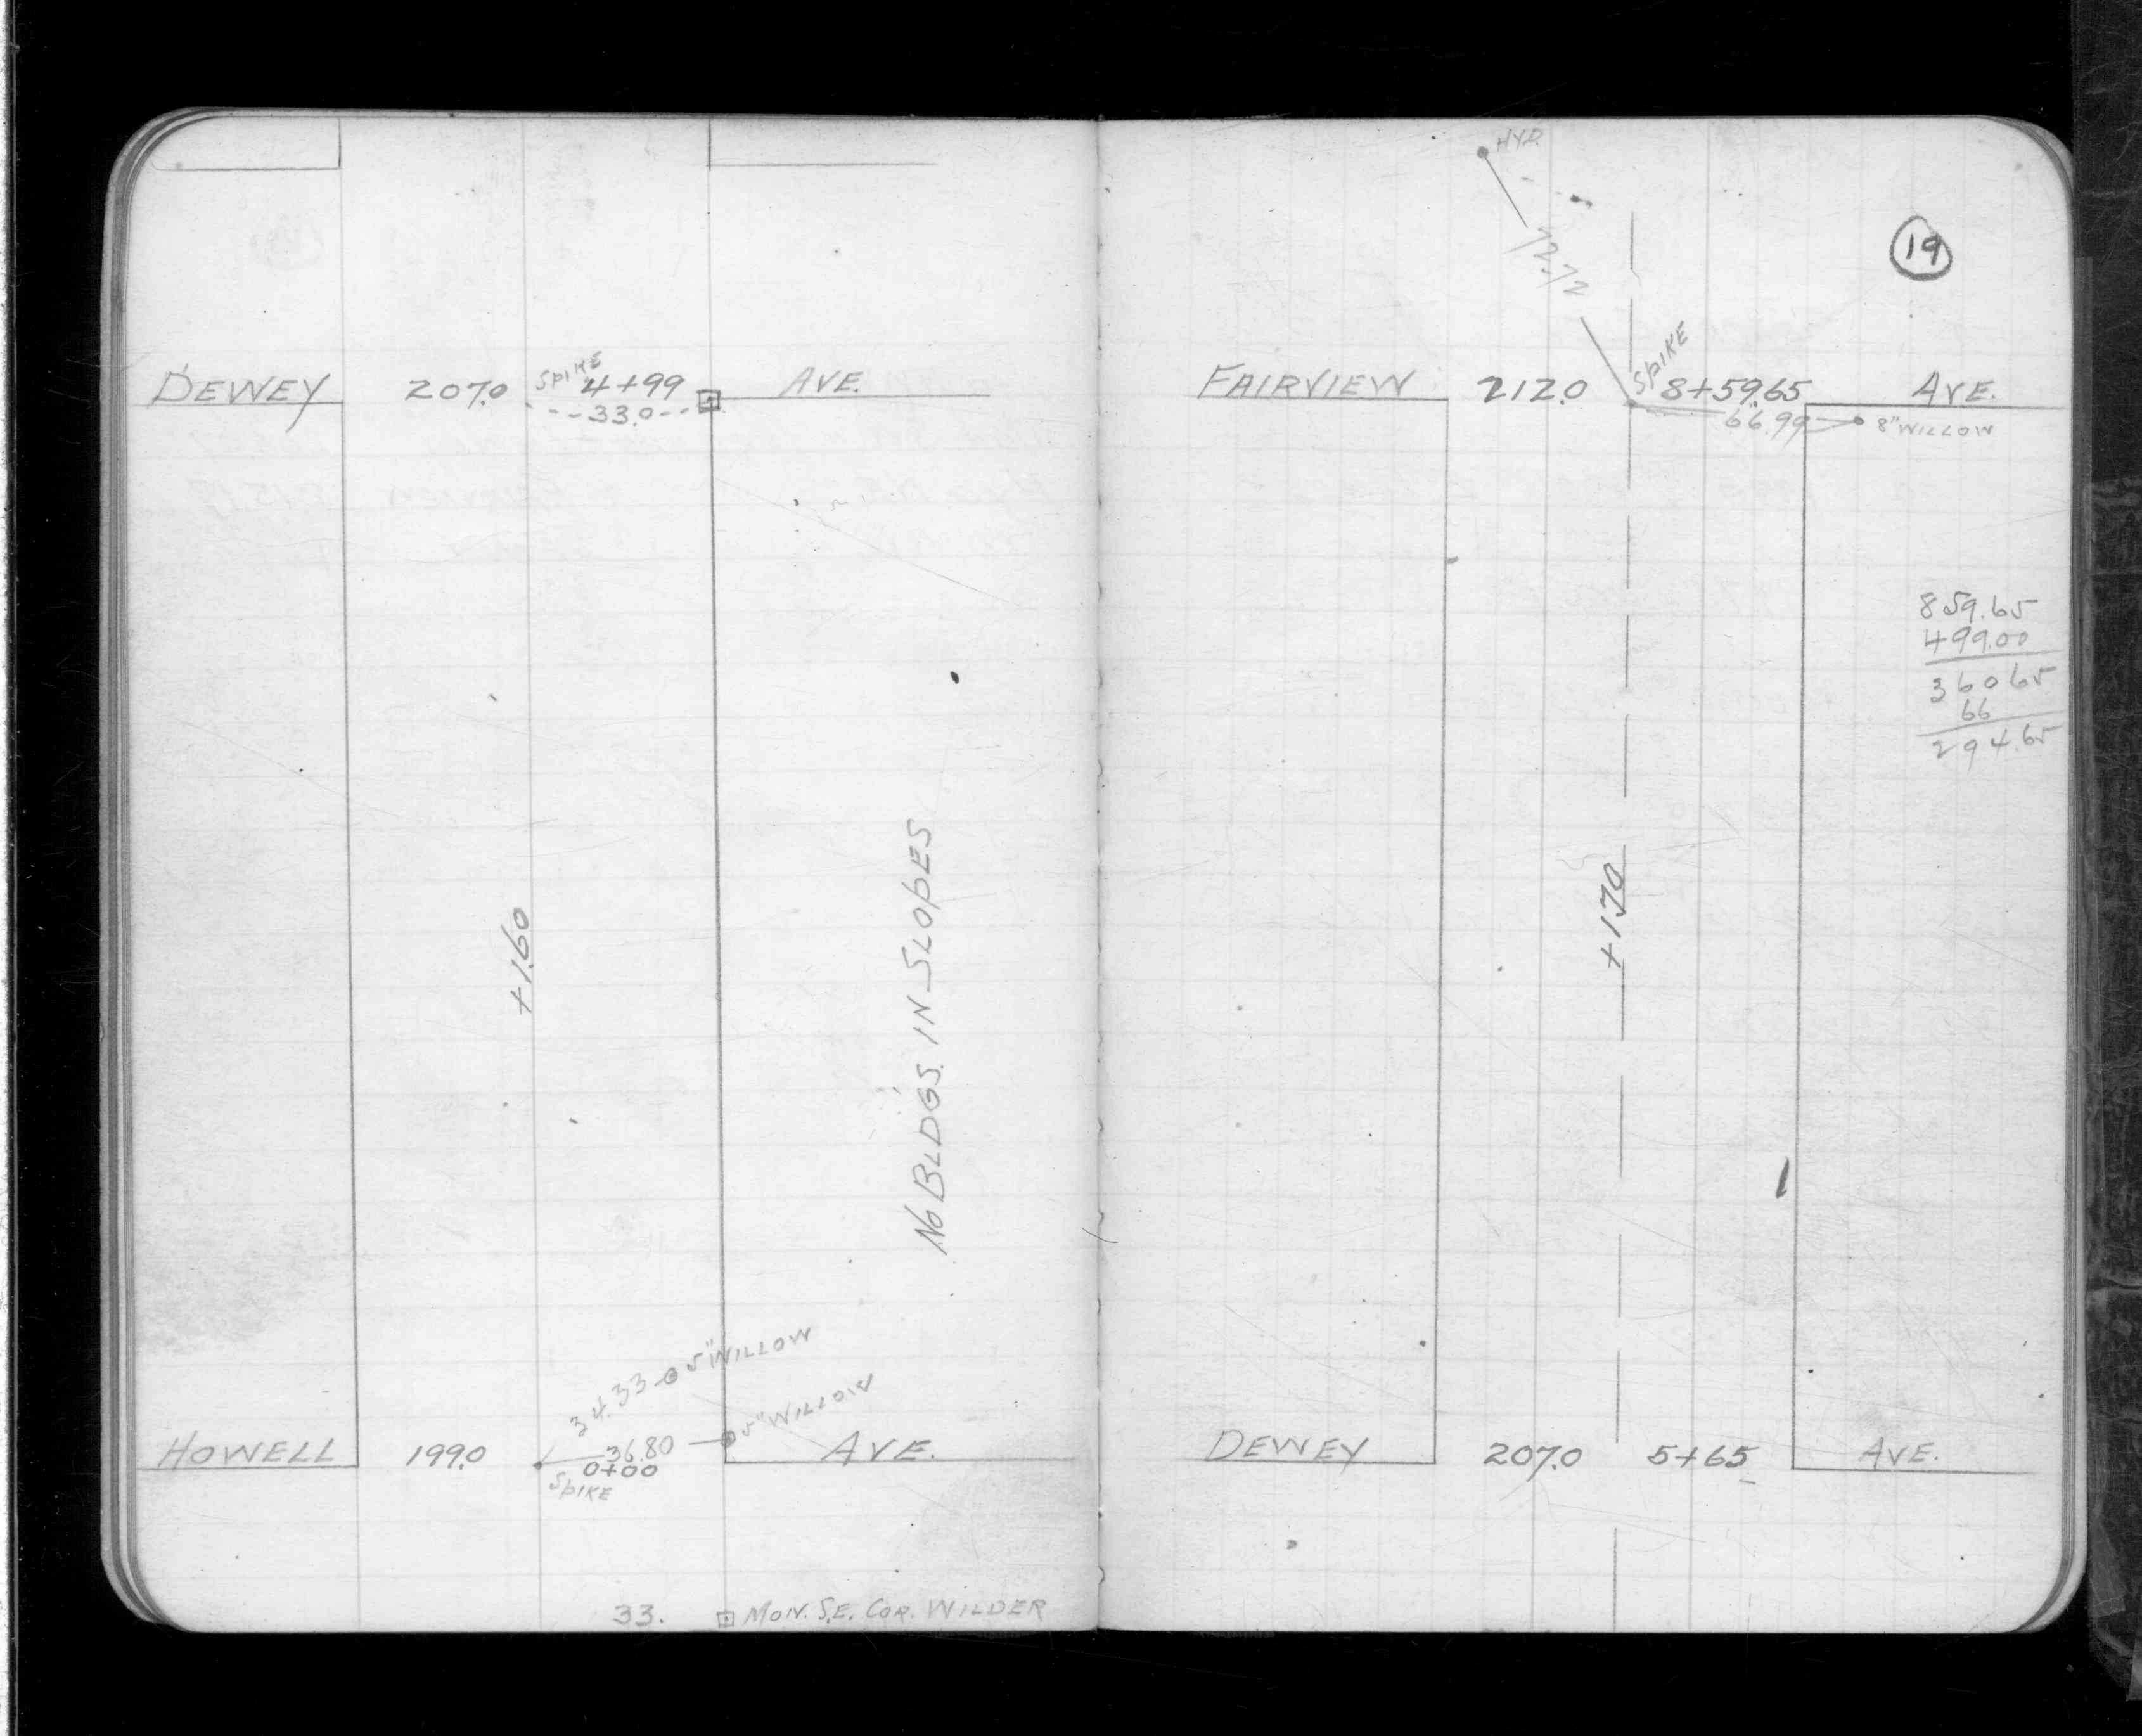 DEWEY 207.0 SPIKE 4+99 AVE.
33.0
+1.60
No BLDGS. IN SLOPES
34.33 5" WILLOW
36.80 5" WILLOW
HOWELL 199.0 0+00 AVE.
SPIKE
33. MON. S.E. COR. WILDER
HYD.
19
72.72
SPIKE
FAIRVIEW 212.0 8+59.65 AVE.
66.99 8" WILLOW
859.65
499.00
360 65
66
294.65
+1.70
DEWEY 207.0 5+65 AVE.